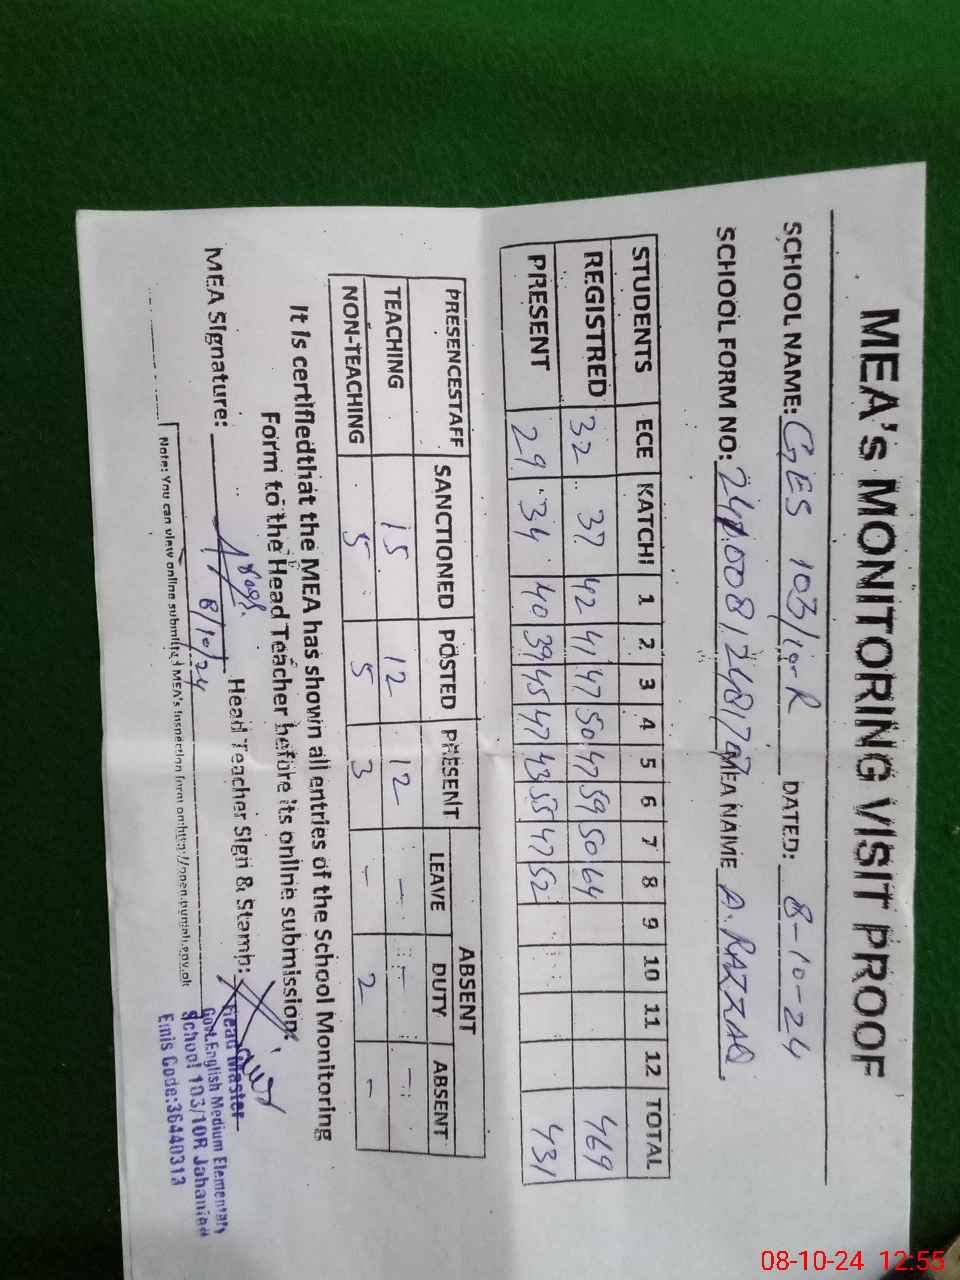 MEA's MONITORING VISIT PROOF
SCHOOL NAME: GES 103/10-R DATED: 8-10-24
SCHOOL FORM NO: MEA NAME A. RAZZAQ.
STUDENTS ECE KATCHI 1 2 3 4 5 6 7 8 9 10 11 12 TOTAL
REGISTRED 32 37 42 41 47 50 47 59 50 64 469
PRESENT 29 34 40 39 45 47 43 55 47 52 431
PRESENCESTAFF SANCTIONED POSTED PRESENT ABSENT
LEAVE DUTY ABSENT
TEACHING 15 12 12 - - -
NON-TEACHING 5 5 3 - 2 -
It is certifiedthat the MEA has shown all entries of the School Monitoring
Form to the Head Teacher before its online submission.
MEA Signature: Head Teacher Sign & Stamp:
8/10/24
Head Master
Govt.English Medium Elementary
School 103/10R Jahanian
Emis Code:36440313
Note: You can view online submitted MEA's Inspection form on:http://open.punjab.gov.pk
08-10-24 12:55